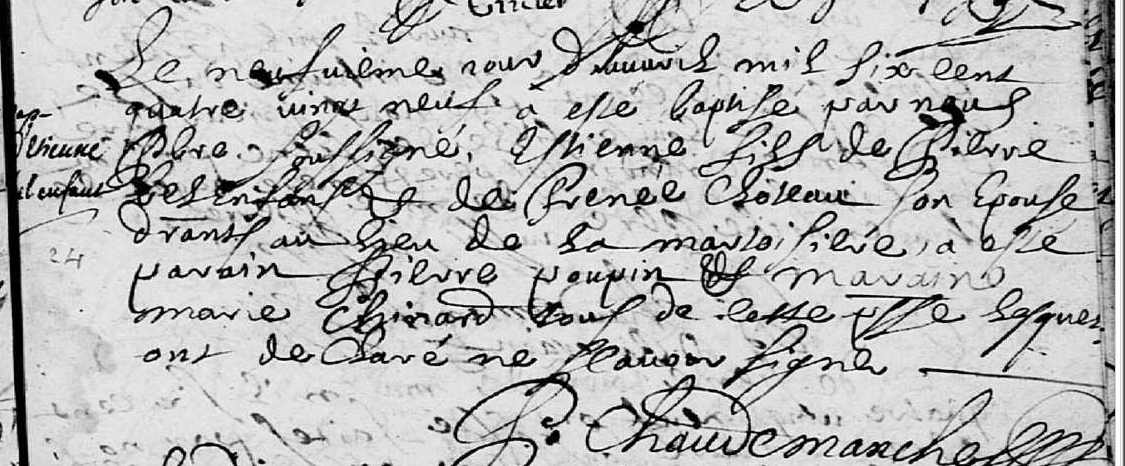 Le neufuieme iour D'auuril mil six cent
quatre vingt neuf a esté baptisé par nous
pbre soussigné, Estienne fils de Pierre
Petenfant & de Renée Choteau son Epouse
drants au lieu de la martoisiere, a esté
parain Pierre poupin & maraine
marie Chinard tous de cette psse lesquels
ont declaré ne scauoir signer
Chaudemanche
Etienne
24